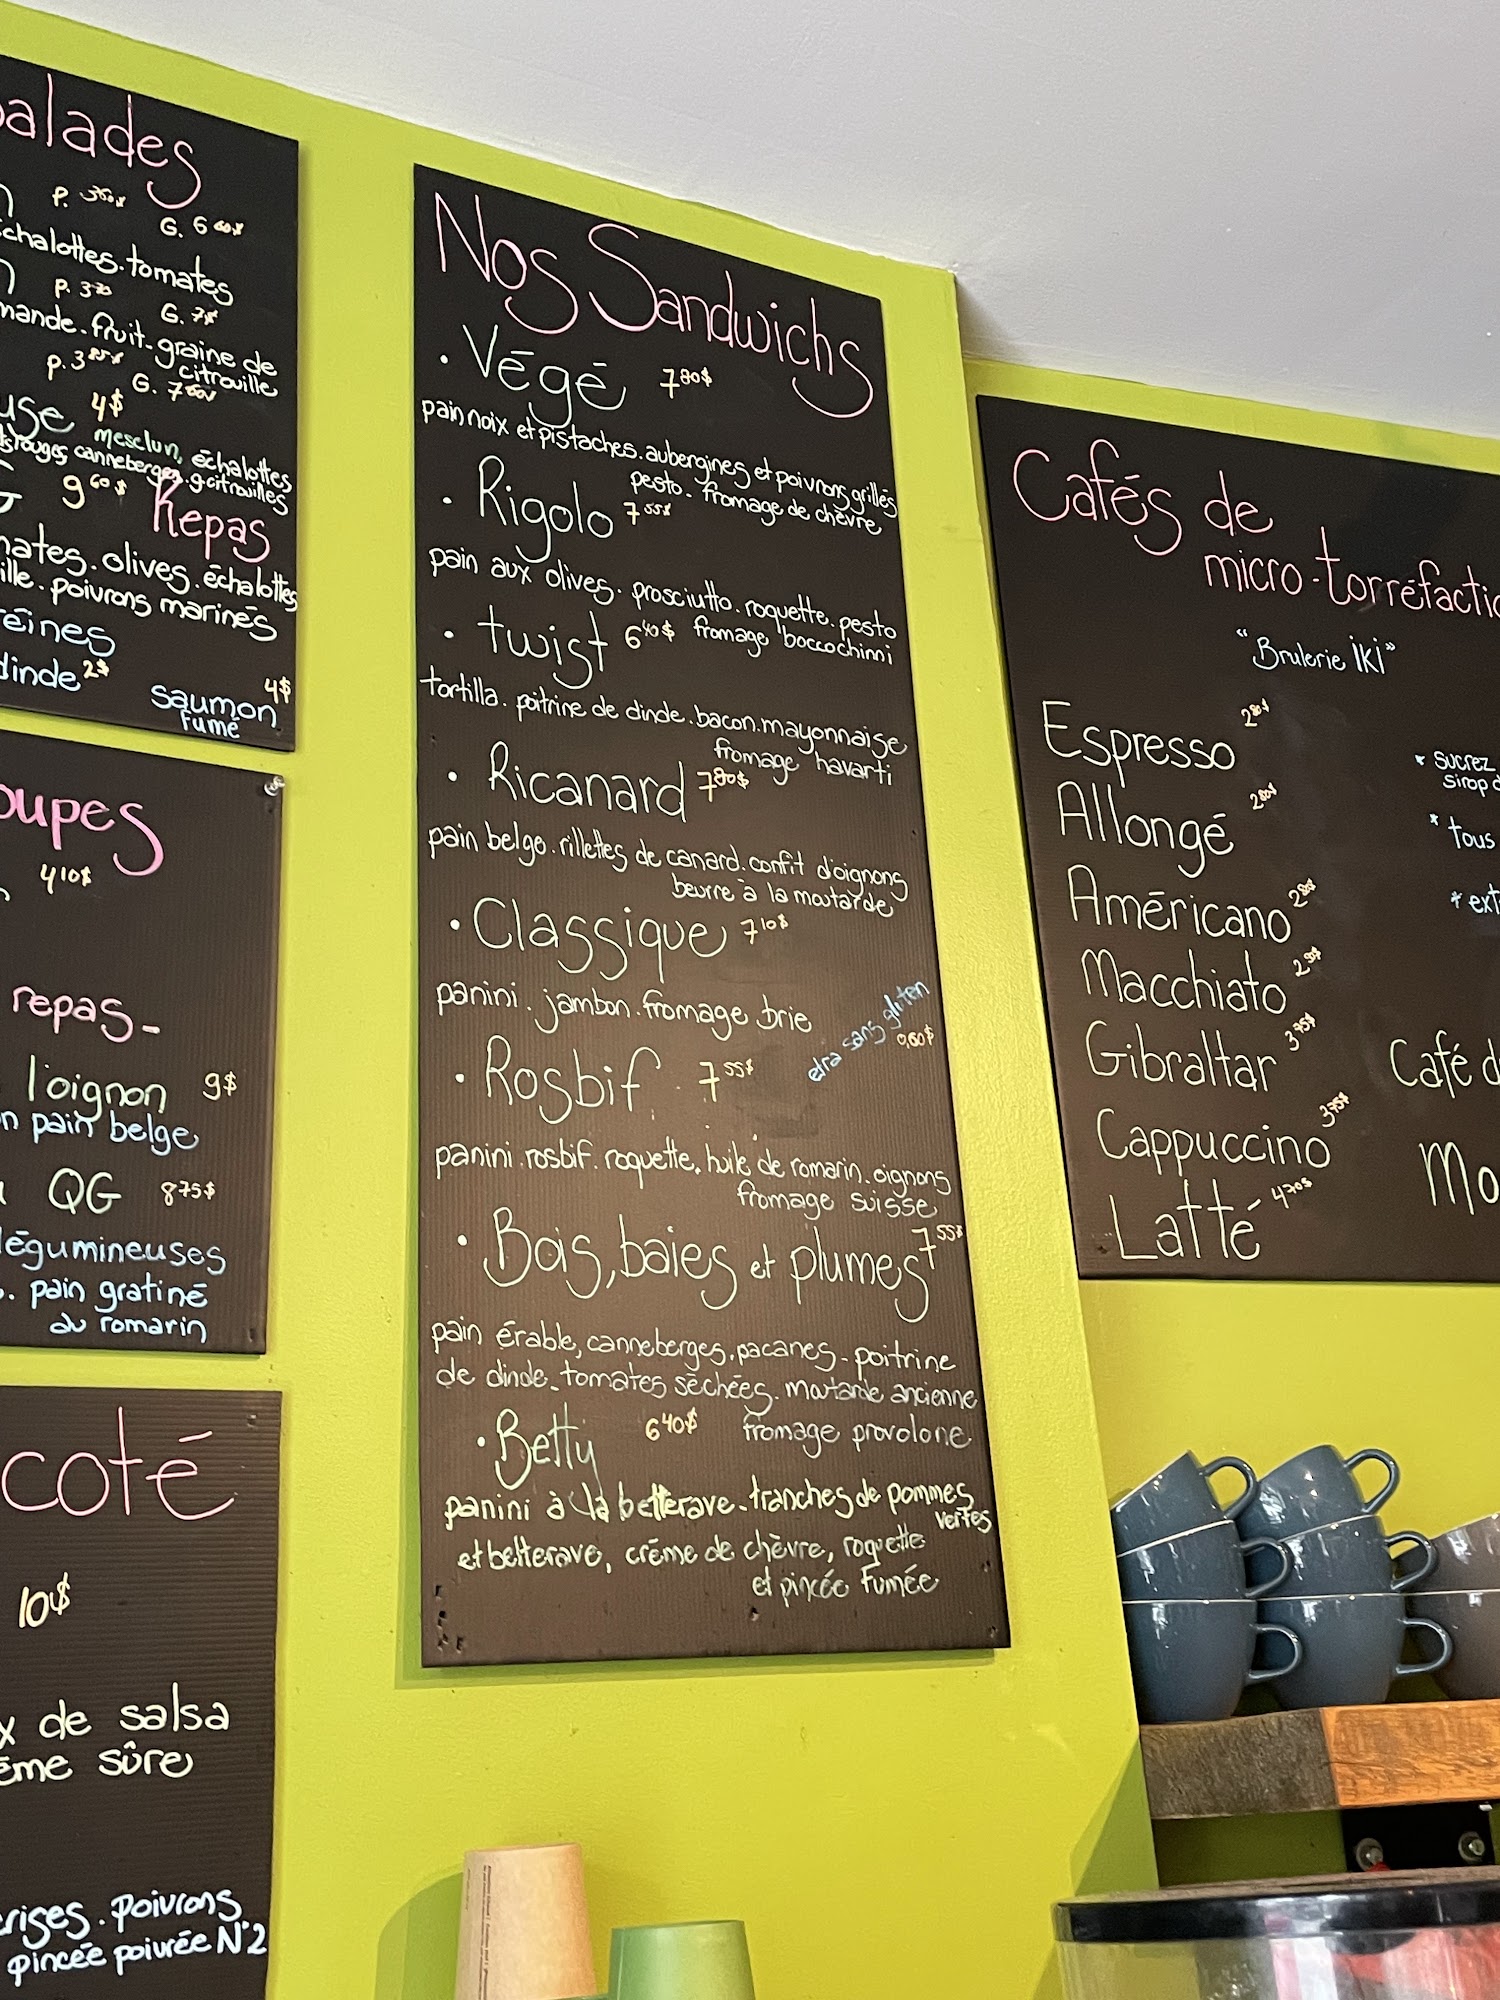 alades
P. 3⁶⁰$ G. 6⁶⁰$
échalottes. tomates
P. 3⁷⁰ G. 7$
mande. fruit- graine de
citrouille
P. 3⁸⁵$ G. 7⁶⁰$
use 4$
mesclun, échalottes
rouges canneberges. g. citrouilles
9⁶⁰$ Repas
mates. olives. échalottes
ille. poivrons marinés
éines
dinde 2$
saumon 4$
fumé
oupes
4¹⁰$
repas-
l'oignon 9$
n pain belge
QG 8⁷⁵$
légumineuses
. pain gratiné
au romarin
coté
10$
x de salsa
ème sûre
rises. poivrons
pincée poivrée N°2
Nos Sandwichs
• Végé 7⁸⁰$
pain noix et pistaches. aubergines et poivrons grillés
pesto. fromage de chèvre
• Rigolo 7⁵⁵$
pain aux olives. prosciutto. roquette. pesto
fromage boccochinni
• twist 6⁴⁰$
tortilla. poitrine de dinde. bacon. mayonnaise
fromage havarti
• Ricanard 7⁸⁰$
pain belge. rillettes de canard. confit d'oignons
beurre à la moutarde
• Classique 7¹⁰$
panini. jambon. fromage brie
extra sans gluten
0,60$
• Rosbif. 7⁵⁵$
panini. rosbif. roquette. huile de romarin. oignons
fromage suisse
• Bois, baies et plumes 7⁵⁵$
pain érable, canneberges. pacanes - poitrine
de dinde. tomates séchées. moutarde ancienne
fromage provolone
• Betty 6⁴⁰$
panini à la betterave. tranches de pommes
vertes
et betterave, crème de chèvre, roquette
et pincée fumée
Cafés de
micro-torréfactio
"Brulerie İKİ"
Espresso 2⁸⁰$
Allongé 2⁸⁰$
Américano 2⁸⁰$
Macchiato 2⁹⁰$
Gibraltar 3⁷⁵$
Cappuccino 3⁷⁵$
Latté 4⁷⁰$
* sucrez
sirop d
* tous
* ext
Café d
Mo